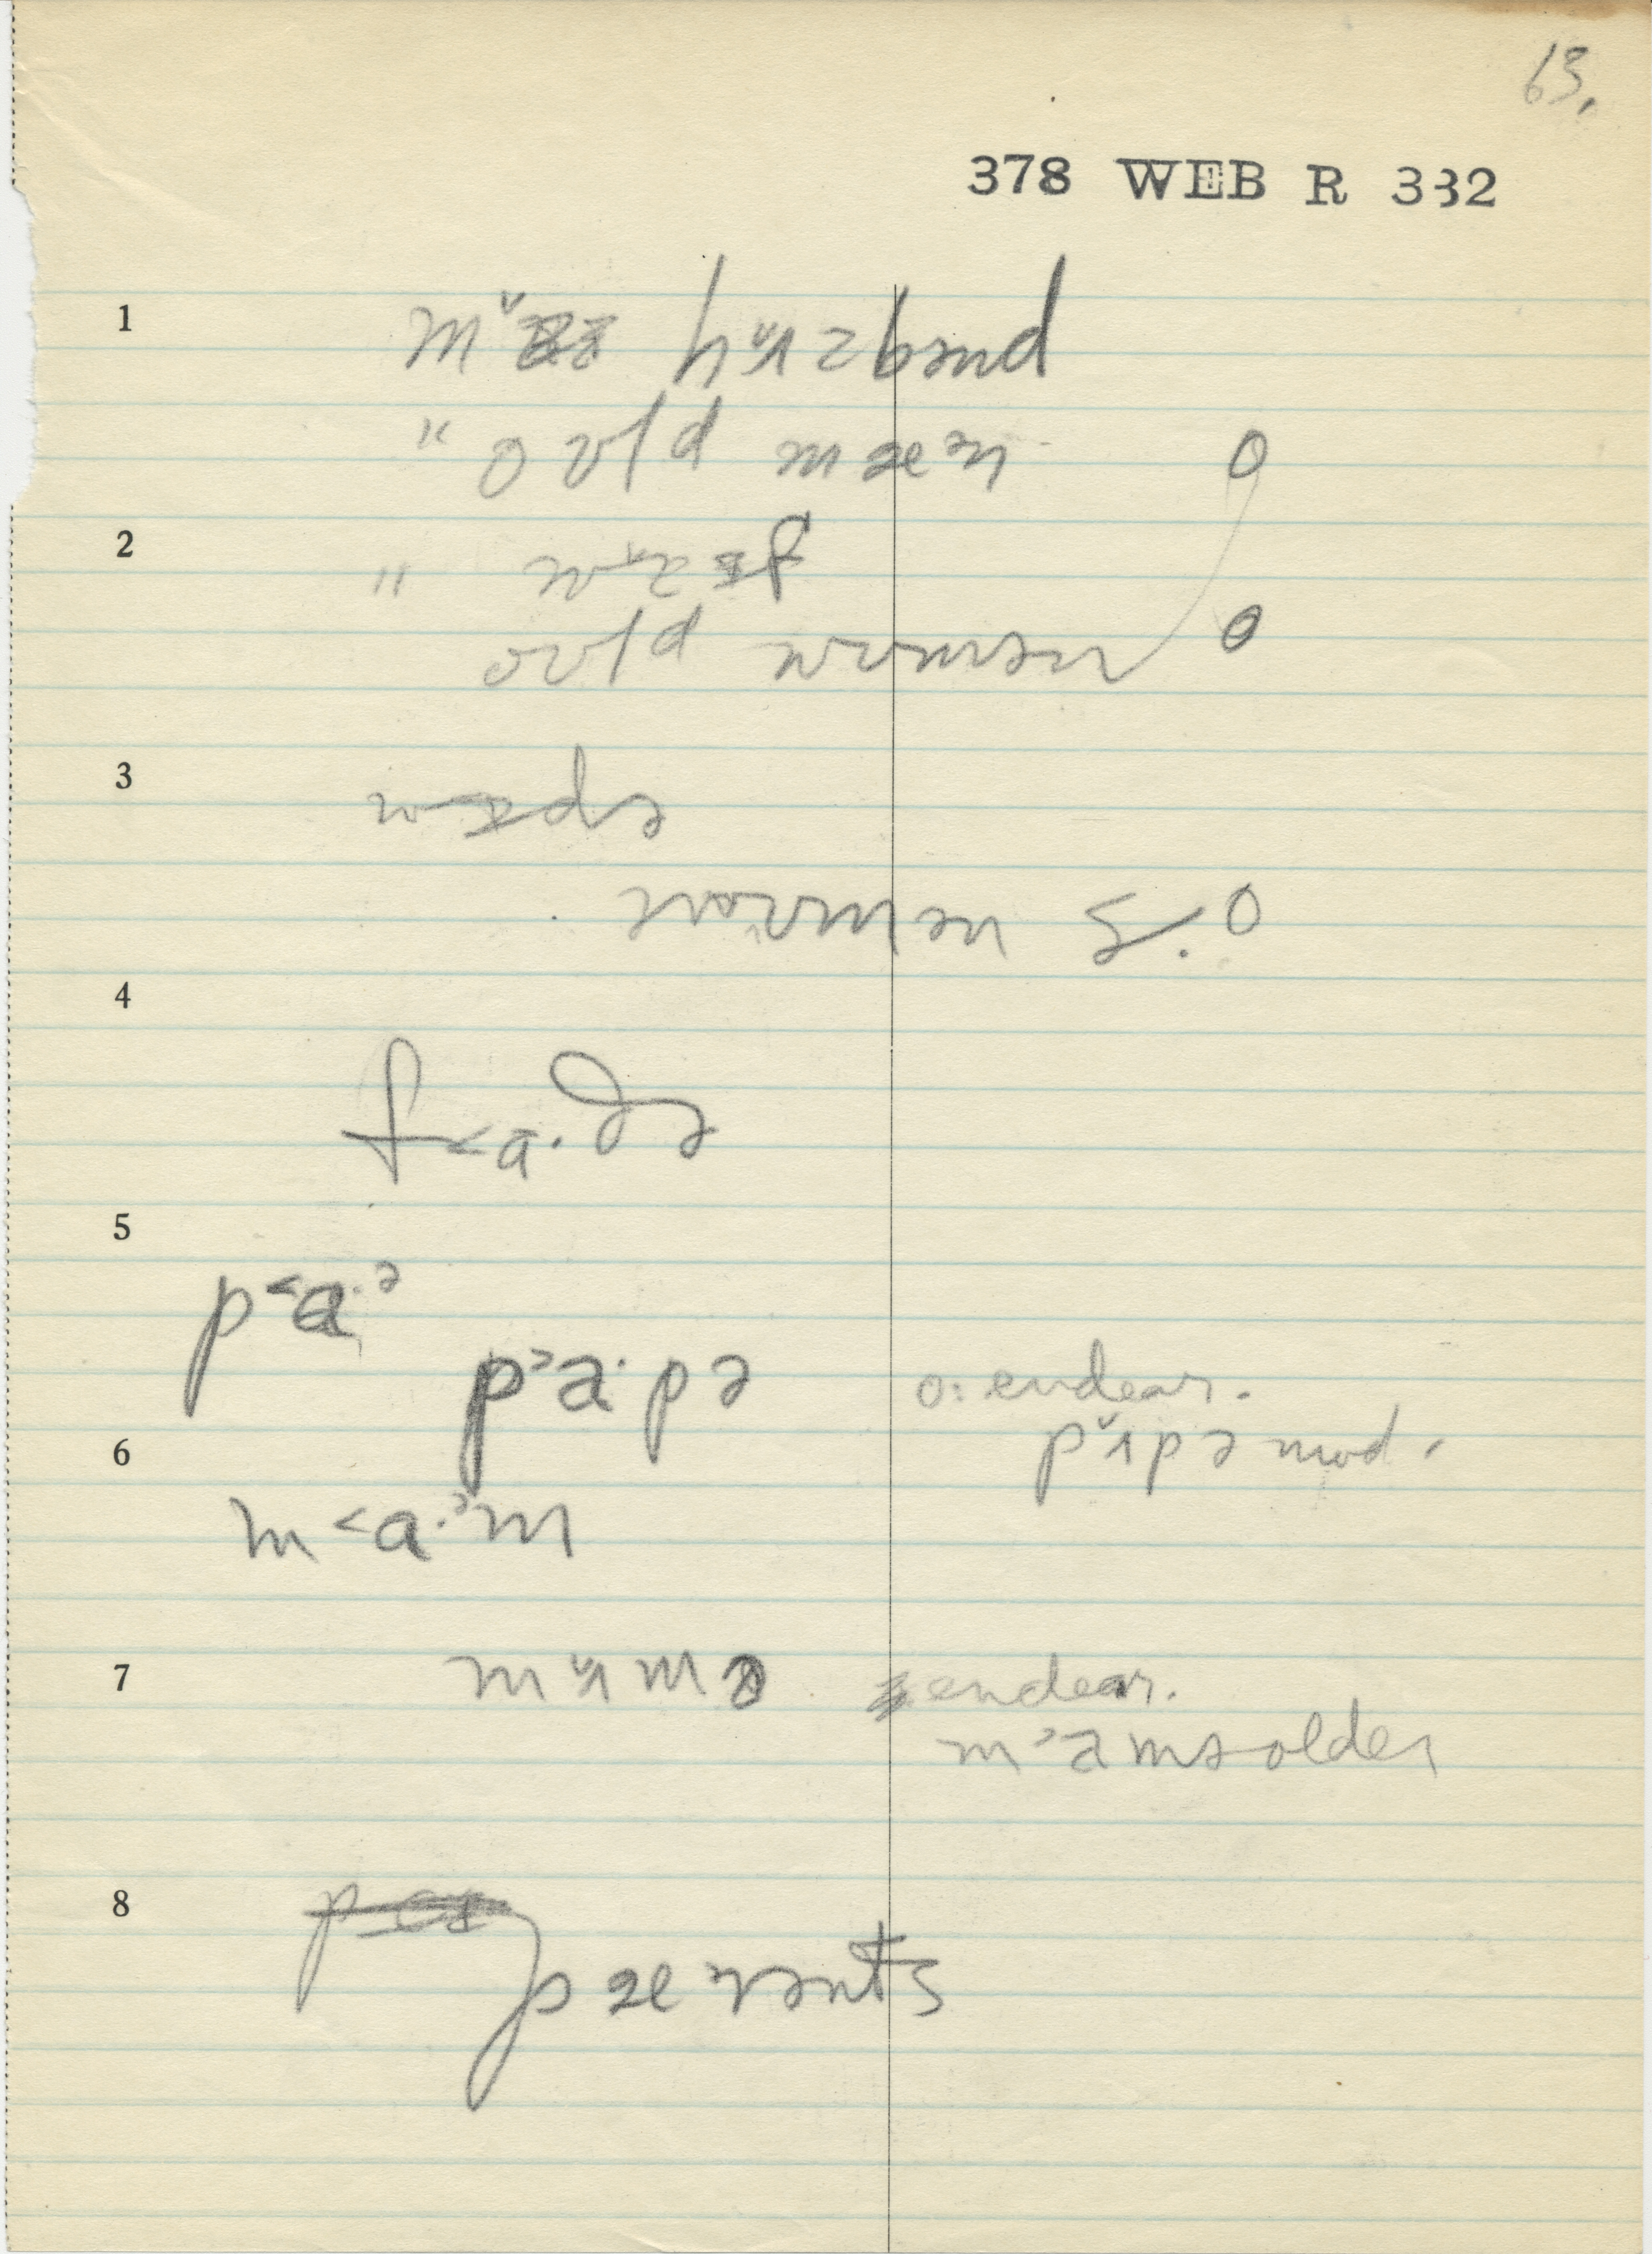 63.
378 WEB R 332
1
hʌ̌zbənd
" oʊld mæən O
2
"
oʊld wʊmən O
3
wɪdə
wʊmən S. O
4
f<a·ðə
5
p<a·ə
p>a·pə o: endear.
6
pʌ̌pə mod.
m<a·əm
7
mʌ̌mə endear.
m>amə older
8
pæɛrənts